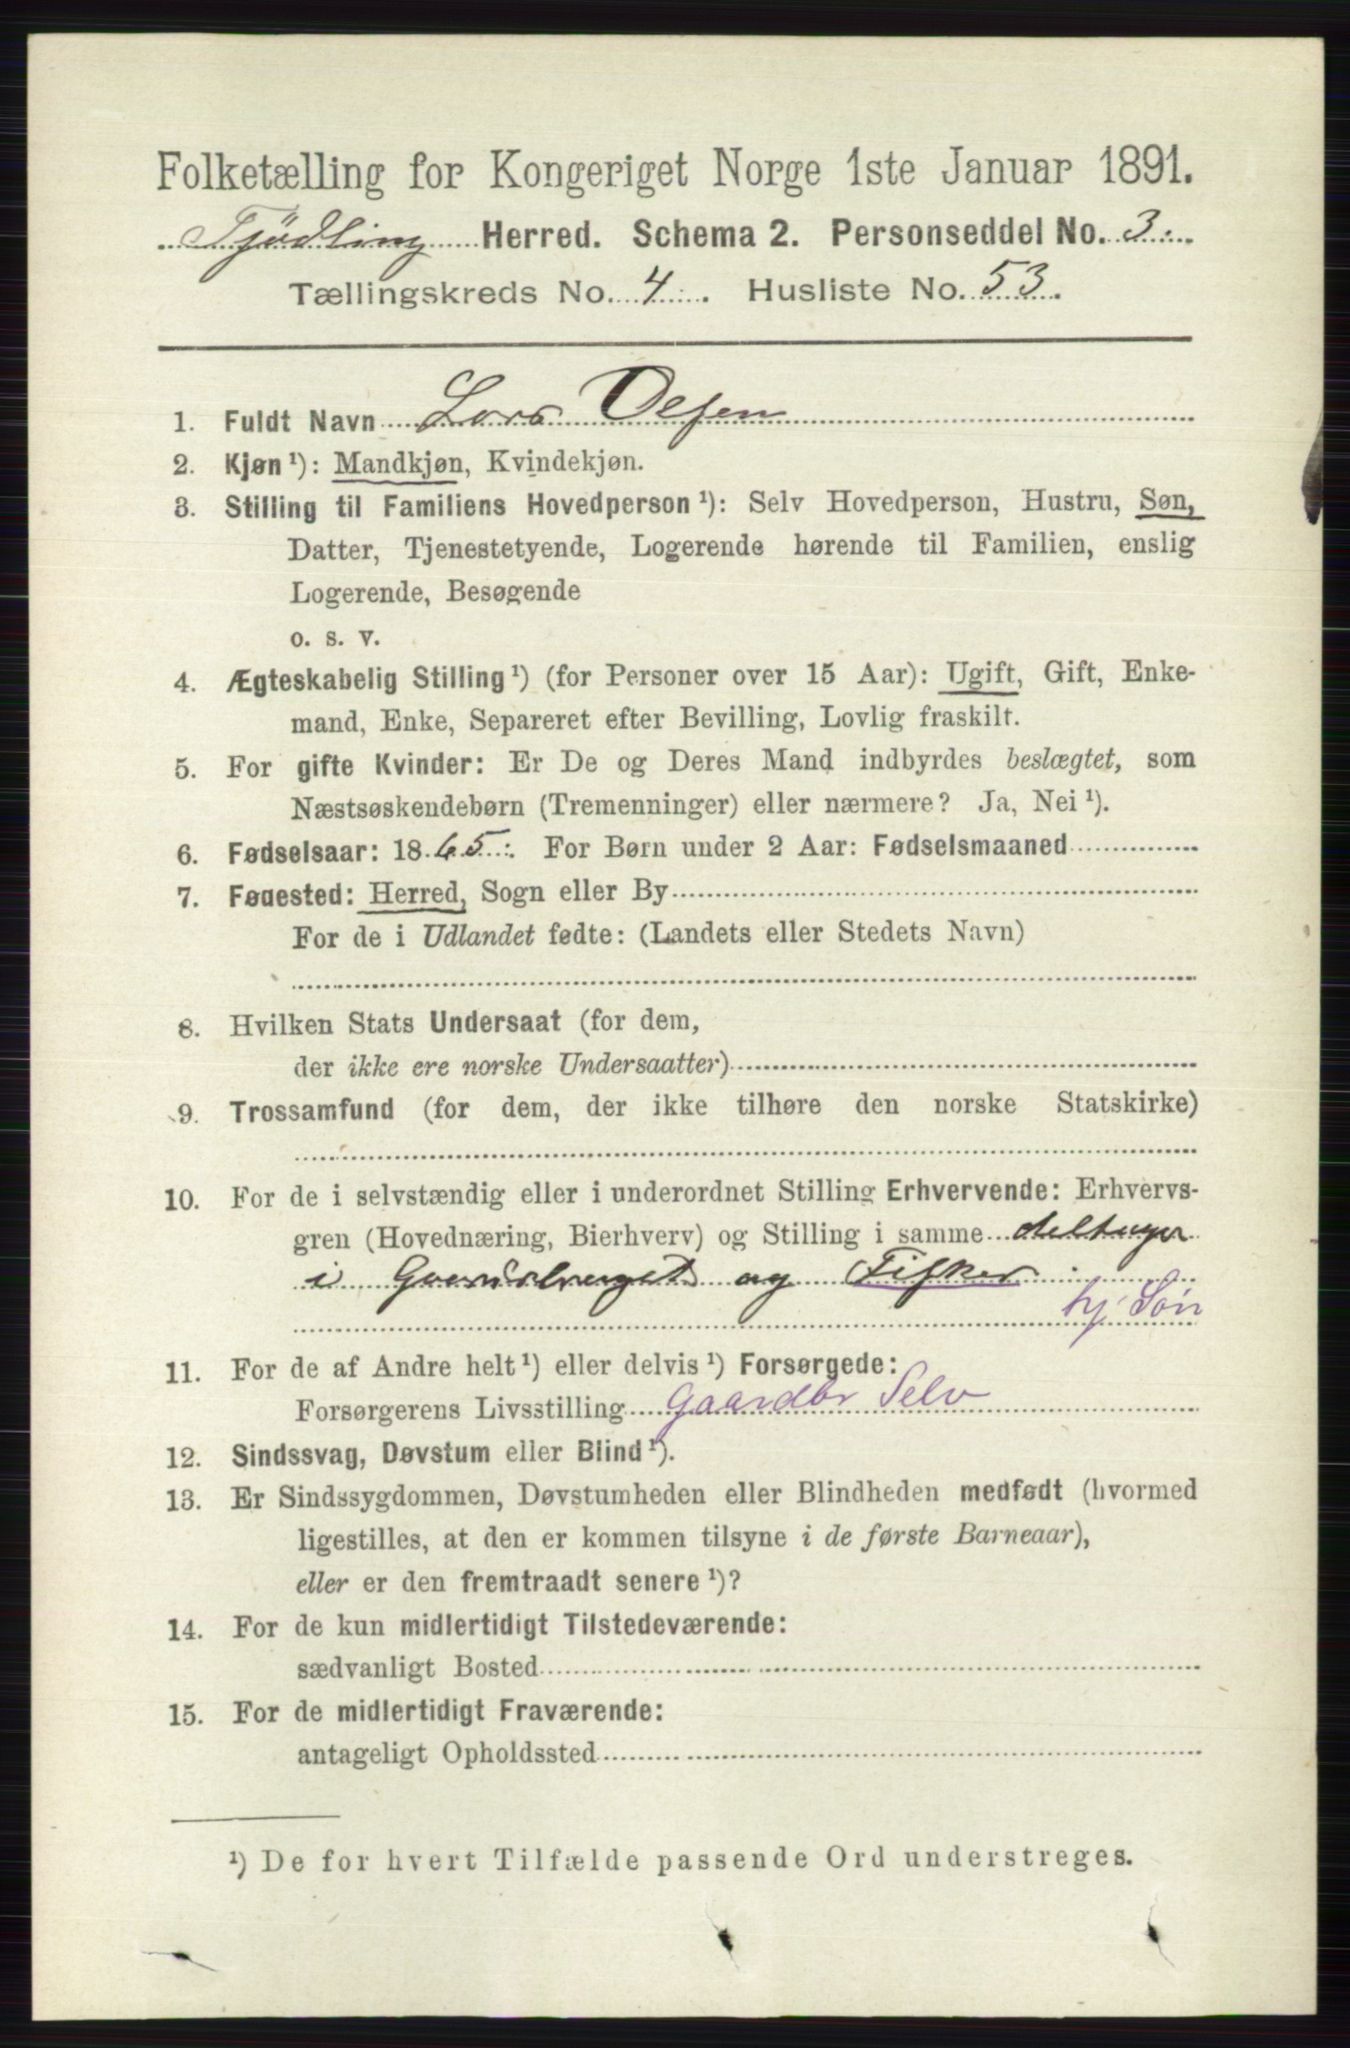 Folketælling for Kongeriget Norge 1ste Januar 1891.
Tjødling Herred. Schema 2. Personseddel No. 3.
Tællingskreds No. 4. Husliste No. 53.
1. Fuldt Navn Lars Olsen
2. Kjøn ¹): Mandkjøn, Kvindekjøn.
3. Stilling til Familiens Hovedperson ¹): Selv Hovedperson, Hustru, Søn,
Datter, Tjenestetyende, Logerende hørende til Familien, enslig
Logerende, Besøgende
o. s. v.
4. Ægteskabelig Stilling ¹) (for Personer over 15 Aar): Ugift, Gift, Enke-
mand, Enke, Separeret efter Bevilling, Lovlig fraskilt.
5. For gifte Kvinder: Er De og Deres Mand indbyrdes beslægtet, som
Næstsøskendebørn (Tremenninger) eller nærmere? Ja, Nei ¹).
6. Fødselsaar: 1865. For Børn under 2 Aar: Fødselsmaaned
7. Fødested: Herred, Sogn eller By
For de i Udlandet fødte: (Landets eller Stedets Navn)
8. Hvilken Stats Undersaat (for dem,
der ikke ere norske Undersaatter)
9. Trossamfund (for dem, der ikke tilhøre den norske Statskirke)
10. For de i selvstændig eller i underordnet Stilling Erhvervende: Erhvervs-
gren (Hovednæring, Bierhverv) og Stilling i samme deltager
i Gaardsbruget og Fisker
hj. Søn
11. For de af Andre helt ¹) eller delvis ¹) Forsørgede:
Forsørgerens Livsstilling Gaardbr Selv
12. Sindssvag, Døvstum eller Blind ¹).
13. Er Sindssygdommen, Døvstumheden eller Blindheden medfødt (hvormed
ligestilles, at den er kommen tilsyne i de første Barneaar),
eller er den fremtraadt senere ¹)?
14. For de kun midlertidigt Tilstedeværende:
sædvanligt Bosted
15. For de midlertidigt Fraværende:
antageligt Opholdssted
¹) De for hvert Tilfælde passende Ord understreges.